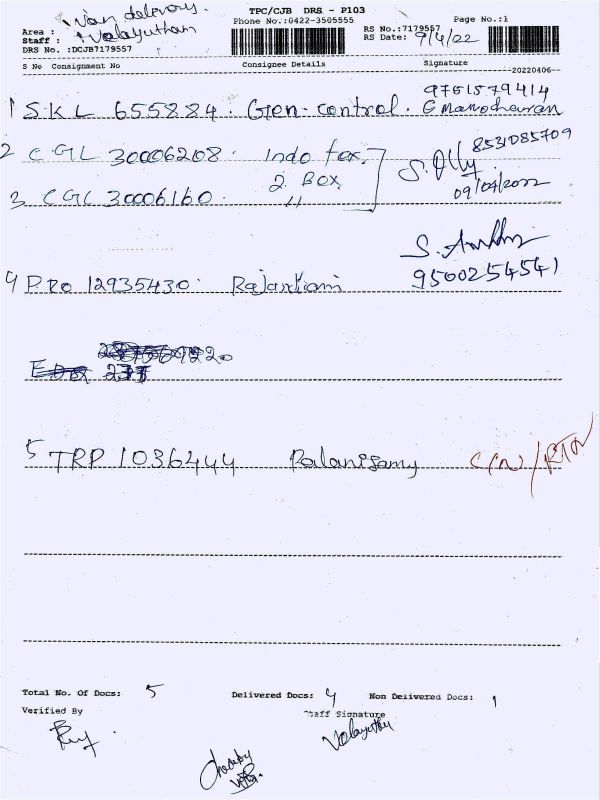 TPC/CJB DRS - P103
Van delivery.
Area :
Phone No.:0422-3505555
Page No.:1
RS No.:7179557
Staff : Velayutham
RS Date: 9/4/22
DRS No. :DCJB7179557
S No Consignment No Consignee Details Signature
20220406
9751579414
1 SKL 655884. Gen. control. G Manoharan
2 CGL 30006208. Indo tex. 8531085709
2 Box 09/04/2022
3 CGL 30006160. "
4 PRO 12935430. 9500254541
5 TRP 1036444 Palanisamy C/N/RTN
Total No. Of Docs: 5 Delivered Docs: 4 Non Delivered Docs: 1
Verified By Staff Signature